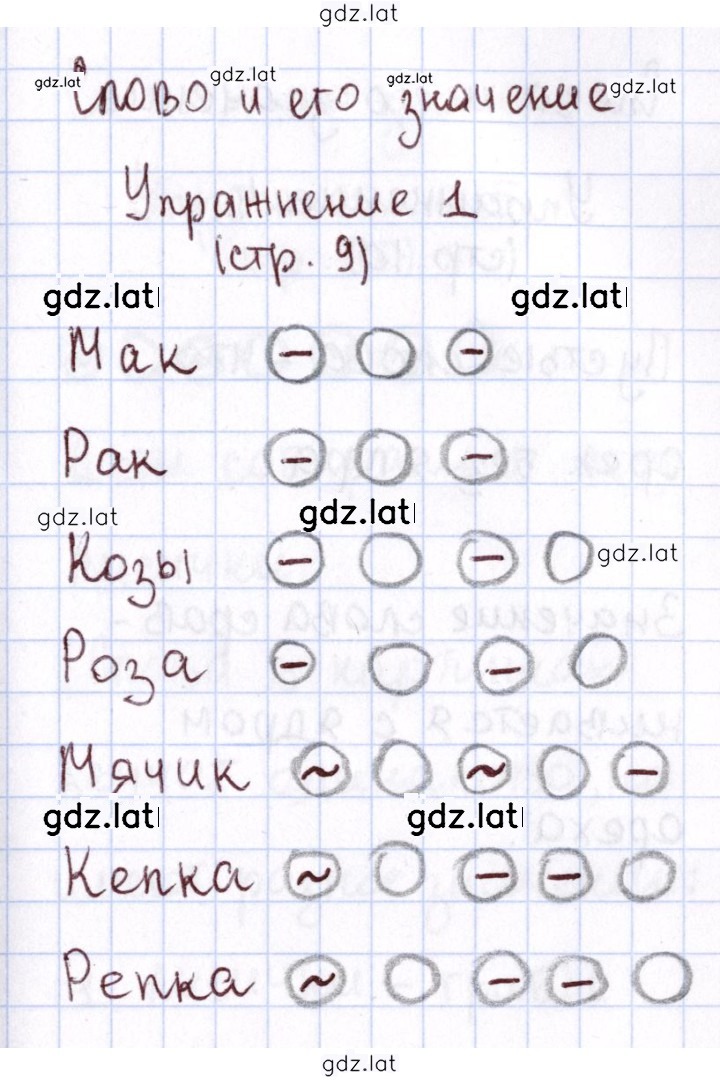 gdz.lat
gdz.lat gdz.lat gdz.lat gdz.lat
Слово и его значение
Упражнение 1
(стр. 9)
gdz.lat gdz.lat
Мак − −
Рак − −
gdz.lat gdz.lat
Козы − − gdz.lat
Роза − −
Мячик ~ ~ −
gdz.lat gdz.lat
Кепка ~ − −
Репка ~ − −
gdz.lat